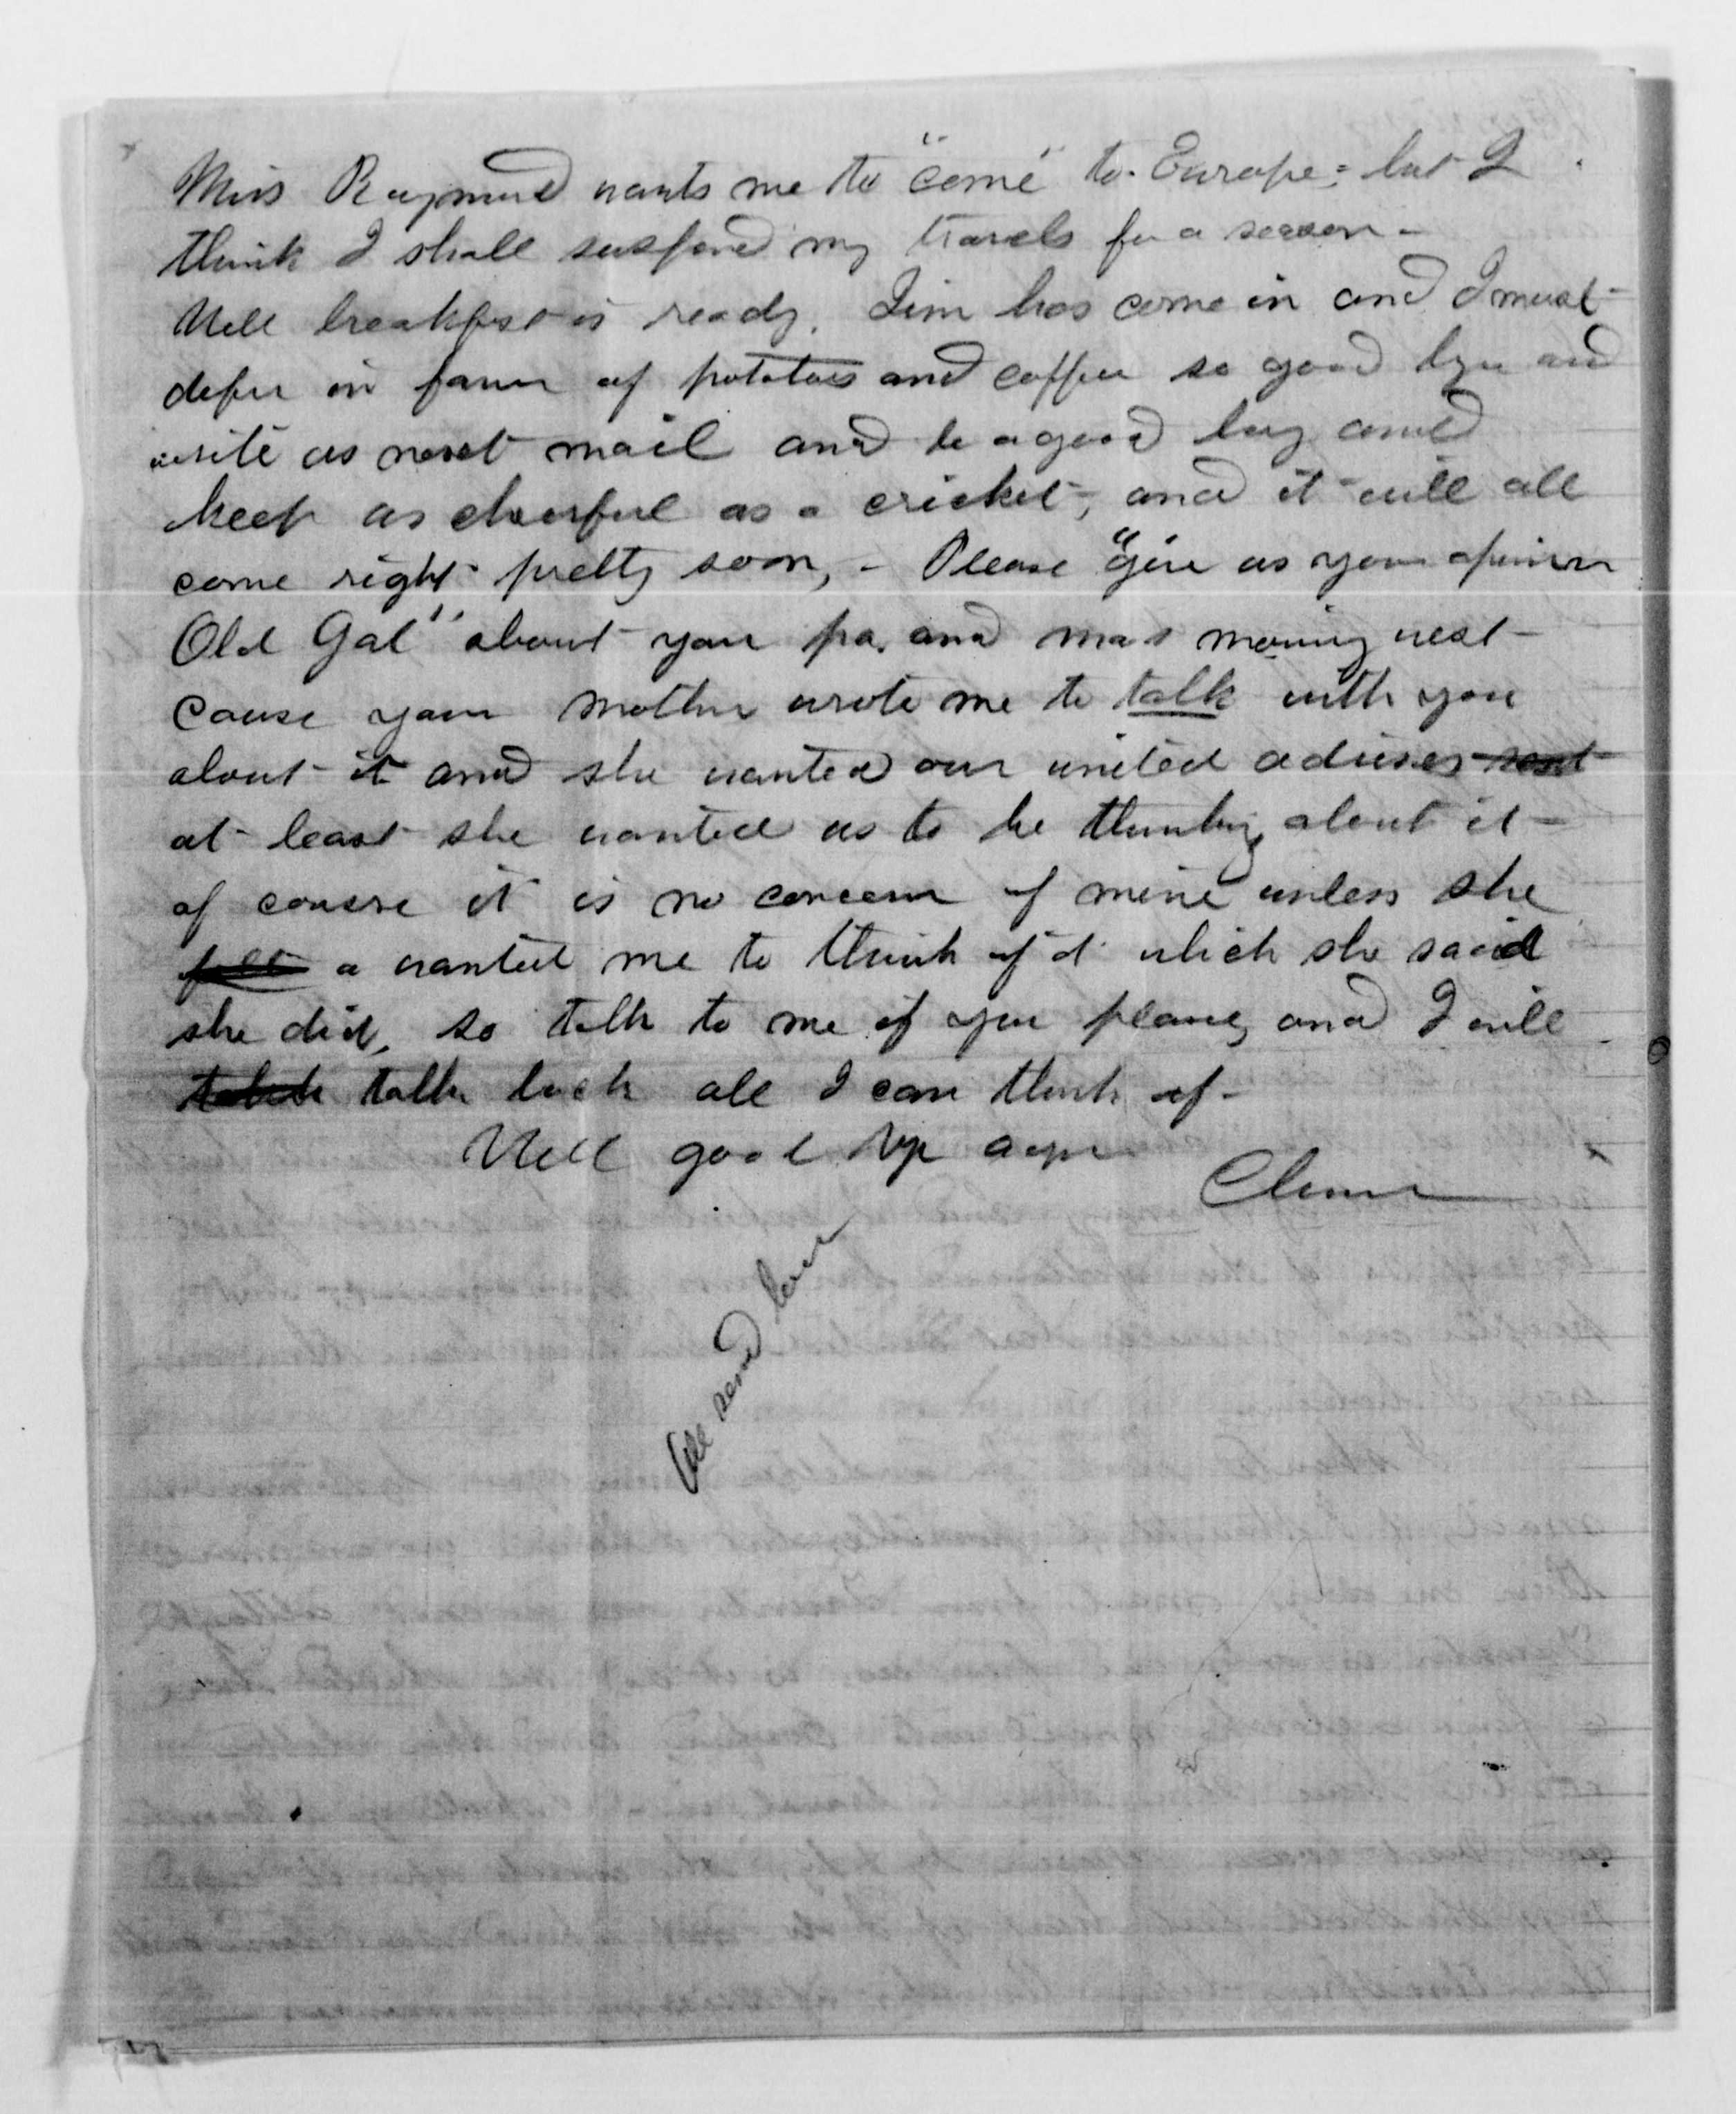 Miss Raymond wants me to "come" to Europe: but I
think I shall suspend my travels for a season -
Well breakfast is ready. Jim has come in and I must
defer in favor of potatoes and coffee so good bye and
write us next mail and be a good boy and
keep as cheerful as a cricket, and it will all
come right pretty soon, - Please "give us your opinion
Old Gal" about your pa, and ma's moving west -
cause your mother wrote me to talk with you
about it and she wanted our united advises
at least she wanted us to be thinking about it -
of course it is no concern of mine unless she
felt a wanted me to think of it which she said
she did, so talk to me of your plans, and I will
talk talk back all I can think of -
Well good bye again
Clara
All send love